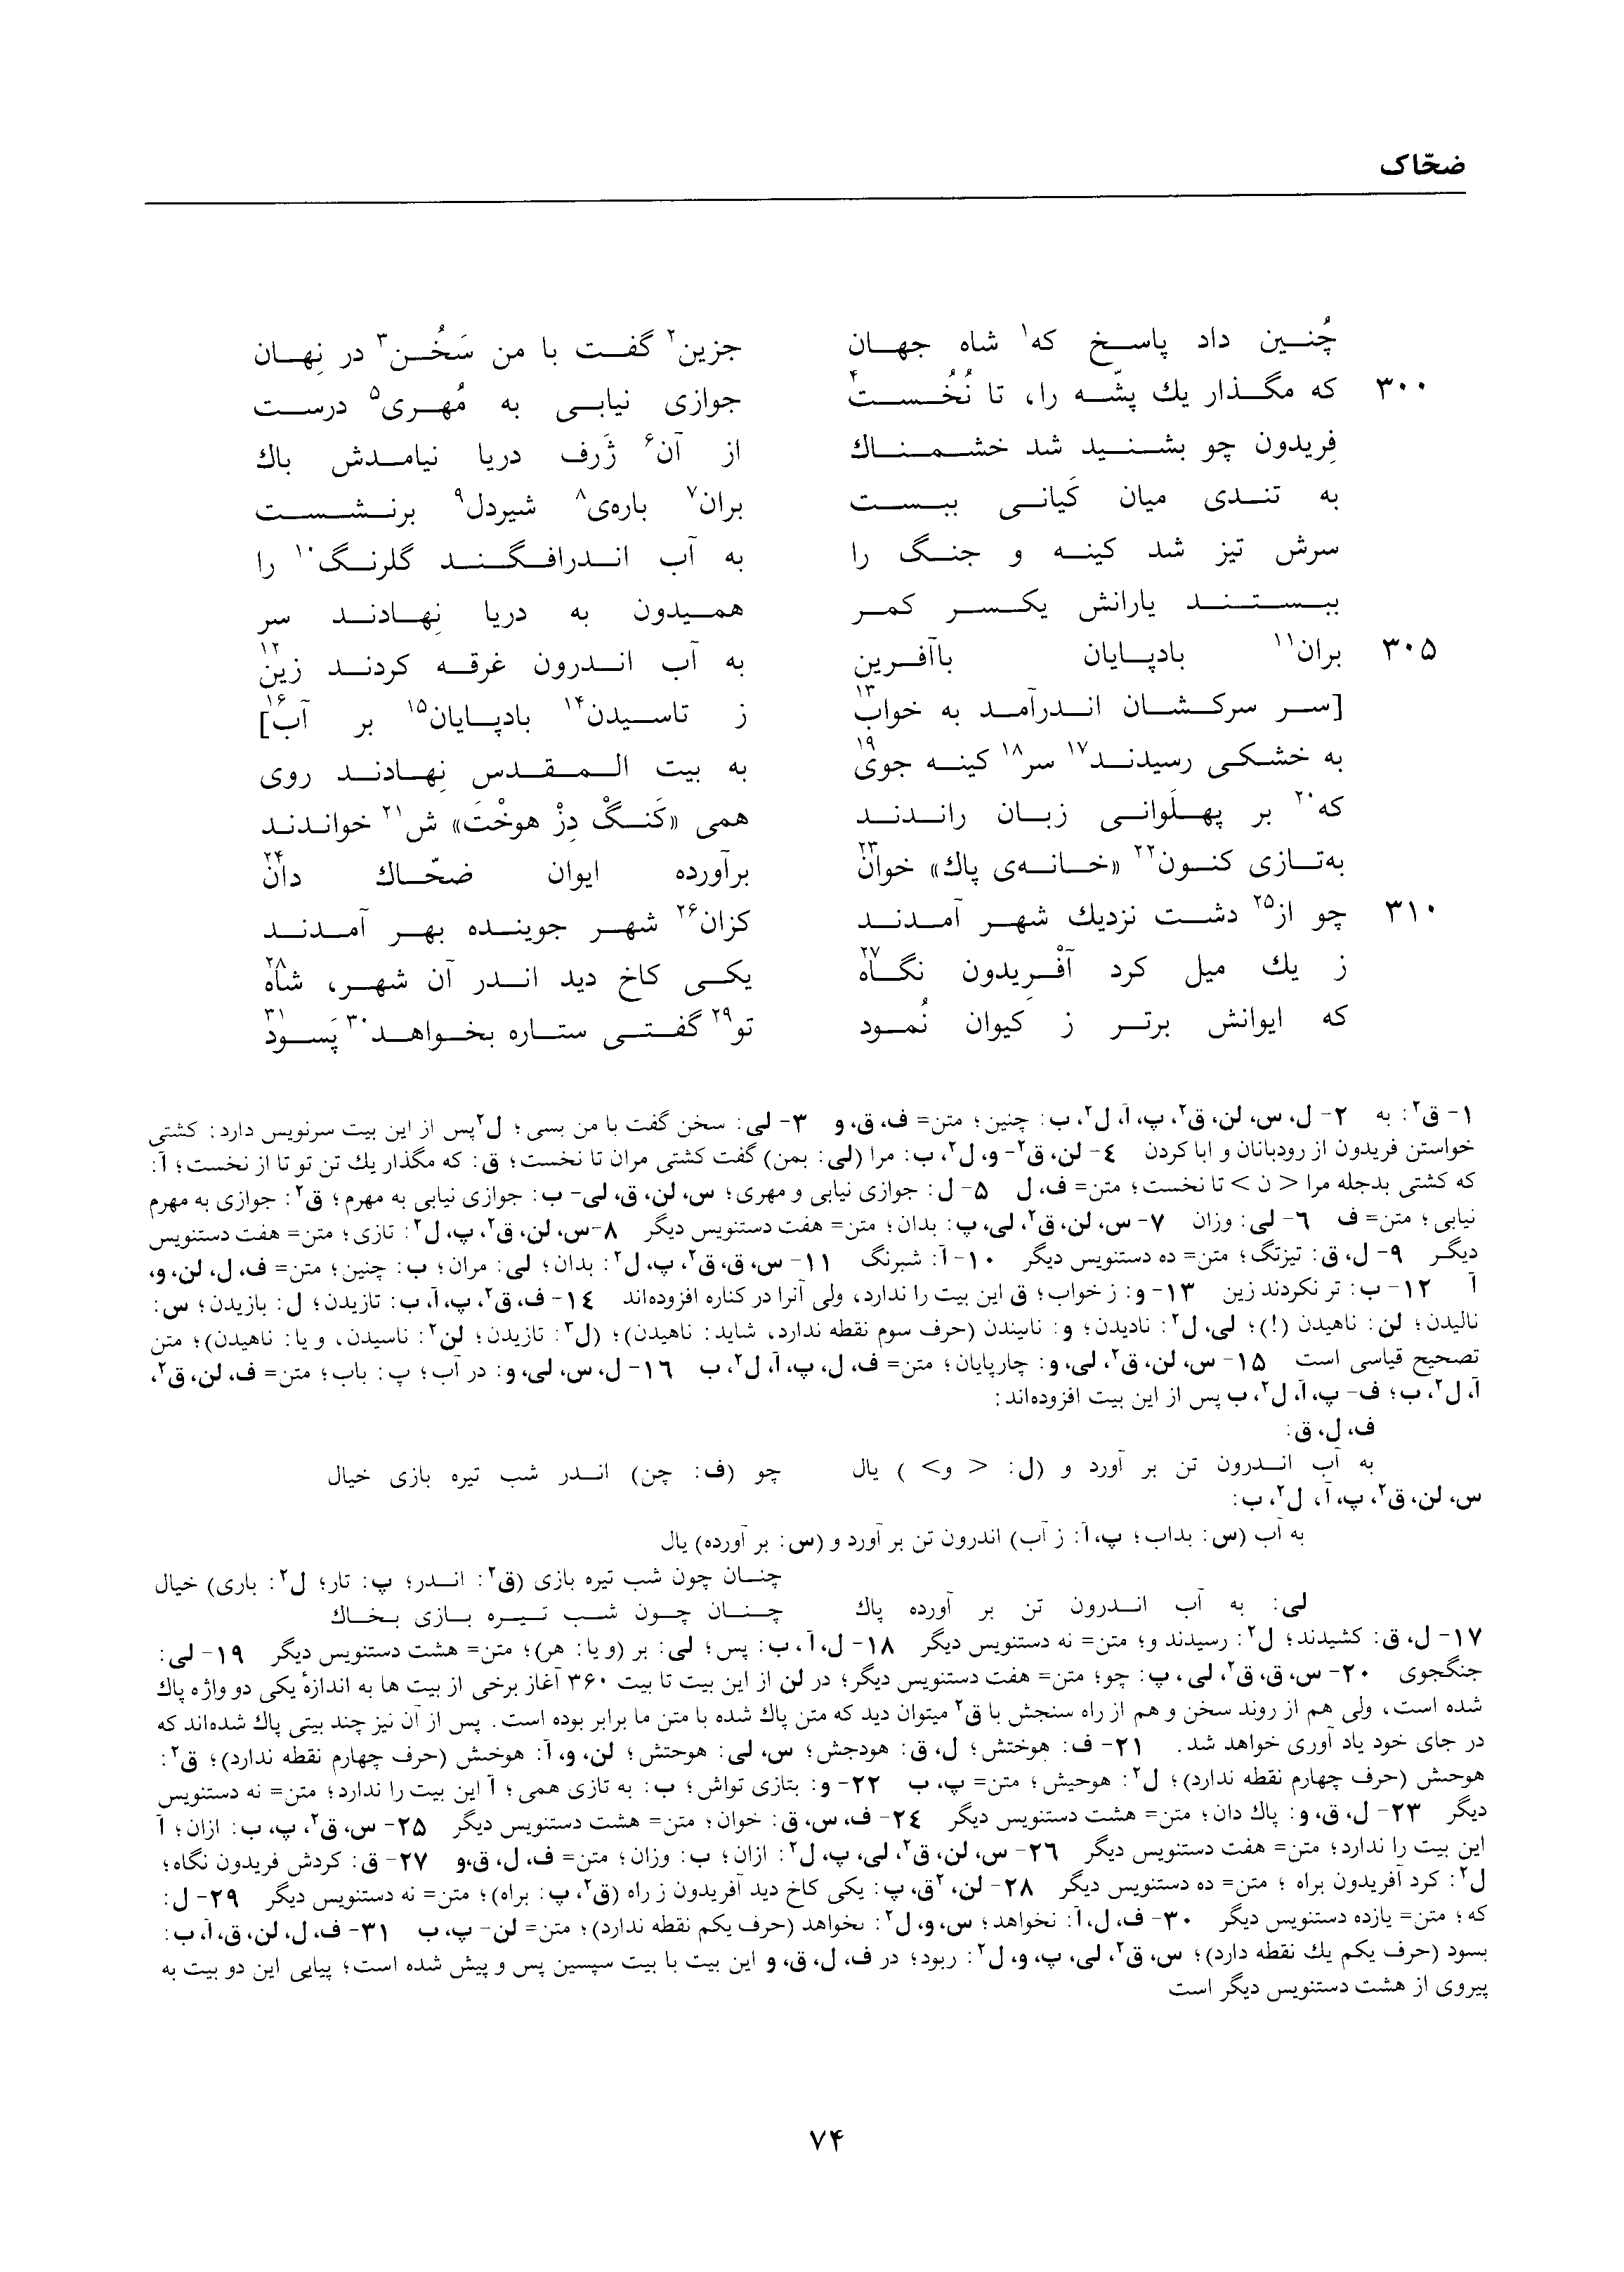 ضحّاک
چُنین داد پاسخ که۱ شاه جهان جزین۲ گفت با من سَخُن۳ در نِهان
۳۰۰ که مگذار یك پشّه را، تا نُخُست۴ جوازی نیابی به مُهری۵ درست
فِریدون چو بشنید شد خشمناك از آن۶ ژَرف دریا نیامدش باك
به تندی میان کَیانی ببست بران۷ باره‌ی۸ شیردل۹ برنشست
سرش تیز شد کینه و جنگ را به آب اندرافگند گلرنگ۱۰ را
ببستند یارانش یکسر کمر همیدون به دریا نِهادند سر
۳۰۵ بران۱۱ بادپایان باآفرین به آب اندرون غرقه کردند زین۱۲
[سر سرکشان اندرآمد به خواب۱۳ ز تاسیدن۱۴ بادپایان۱۵ بر آب۱۶]
به خشکی رسیدند۱۷ سر۱۸ کینه جوی۱۹ به بیت المقدس نِهادند روی
که۲۰ بر پهلَوانی زبان راندند همی «کَنگْ دِزْ هوخْت» ش۲۱ خواندند
به‌تازی کنون۲۲ «خانه‌ی پاك» خوان۲۳ برآورده ایوان ضحّاك دان۲۴
۳۱۰ چو از۲۵ دشت نزدیك شهر آمدند کزان۲۶ شهر جوینده بهر آمدند
ز یك میل کرد آفْرِیدون نگاه۲۷ یکی کاخ دید اندر آن شهر، شاه۲۸
که ایوانش برتر ز کیوان نُمود تو۲۹ گفتی ستاره بخواهد۳۰ پَسود۳۱
۱- ق۲: به ۲- ل، س، لن، ق۲، پ، آ، ل۲، ب: چنین؛ متن= ف، ق، و ۳- لی: سخن گفت با من بسی؛ ل۲ پس از این بیت سرنویس دارد: کشتی
خواستن فریدون از رودبانان و ابا کردن ۴- لن، ق۲- و، ل۲، ب: مرا (لی: بمن) گفت کشتی مران تا نخست؛ ق: که مگذار یك تن تو تا از نخست؛ آ:
که کشتی بدجله مرا < ن > تا نخست؛ متن= ف، ل ۵- ل: جوازی نیابی و مهری؛ س، لن، ق، لی- ب: جوازی نیابی به مهرم؛ ق۲: جوازی به مهرم
نیابی؛ متن= ف ۶- لی: وزان ۷- س، لن، ق۲، لی، پ: بدان؛ متن= هفت دستنویس دیگر ۸-س، لن، ق۲، پ، ل۲: تازی؛ متن= هفت دستنویس
دیگر ۹- ل، ق: تیزتگ؛ متن= ده دستنویس دیگر ۱۰- آ: شبرنگ ۱۱- س، ق، ق۲، پ، ل۲: بدان؛ لی: مران؛ ب: چنین؛ متن= ف، ل، لن، و،
آ ۱۲- ب: تر نکردند زین ۱۳- و: ز خواب؛ ق این بیت را ندارد، ولی آنرا در کناره افزوده‌اند ۱۴- ف، ق۲، پ، آ، ب: تازیدن؛ ل: بازیدن؛ س:
نالیدن؛ لن: ناهیدن (!)؛ لی، ل۲: نادیدن؛ و: نابیندن (حرف سوم نقطه ندارد، شاید: ناهیدن)؛ (ل۳: تازیدن؛ لن۲: ناسیدن، و یا: ناهیدن)؛ متن
تصحیح قیاسی است ۱۵- س، لن، ق۲، لی، و: چارپایان؛ متن= ف، ل، پ، آ، ل۲، ب ۱۶- ل، س، لی، و: در آب؛ پ: باب؛ متن= ف، لن، ق۲،
آ، ل۲، ب؛ ف- پ، آ، ل۲، ب پس از این بیت افزوده‌اند:
ف، ل، ق:
به آب اندرون تن بر آورد و (ل: < و> ) یال چو (ف: چن) اندر شب تیره بازی خیال
س، لن، ق۲، پ، آ، ل۲، ب:
به آب (س: بداب؛ پ، آ: ز آب) اندرون تن بر آورد و (س: بر آورده) یال
چنان چون شب تیره بازی (ق۲: اندر؛ پ: تار؛ ل۲: باری) خیال
لی: به آب اندرون تن بر آورده پاك چنان چون شب تیره بازی بخاك
۱۷- ل، ق: کشیدند؛ ل۲: رسیدند و؛ متن= نه دستنویس دیگر ۱۸- ل، آ، ب: پس؛ لی: بر (و یا: هر)؛ متن= هشت دستنویس دیگر ۱۹- لی:
جنگجوی ۲۰- س، ق، ق۲، لی، پ: چو؛ متن= هفت دستنویس دیگر؛ در لن از این بیت تا بیت ۳۶۰ آغاز برخی از بیت ها به اندازهٔ یکی دو واژه پاك
شده است، ولی هم از روند سخن و هم از راه سنجش با ق۲ میتوان دید که متن پاك شده با متن ما برابر بوده است. پس از آن نیز چند بیتی پاك شده‌اند که
در جای خود یاد آوری خواهد شد. ۲۱- ف: هوختش؛ ل، ق: هودجش؛ س، لی: هوحتش؛ لن، و، آ: هوخىش (حرف چهارم نقطه ندارد)؛ ق۲:
هوحىش (حرف چهارم نقطه ندارد)؛ ل۲: هوحیش؛ متن= پ، ب ۲۲- و: بتازی تواش؛ ب: به تازی همی؛ آ این بیت را ندارد؛ متن= نه دستنویس
دیگر ۲۳- ل، ق، و: پاك دان؛ متن= هشت دستنویس دیگر ۲۴- ف، س، ق: خوان؛ متن= هشت دستنویس دیگر ۲۵- س، ق۲، پ، ب: ازان؛ آ
این بیت را ندارد؛ متن= هفت دستنویس دیگر ۲۶- س، لن، ق۲، لی، پ، ل۲: ازان؛ ب: وزان؛ متن= ف، ل، ق، و ۲۷- ق: کردش فریدون نگاه؛
ل۲: کرد آفریدون براه ؛ متن= ده دستنویس دیگر ۲۸- لن، ق۲، پ: یکی کاخ دید آفریدون ز راه (ق۲، پ: براه)؛ متن= نه دستنویس دیگر ۲۹- ل:
که؛ متن= یازده دستنویس دیگر ۳۰- ف، ل، آ: نخواهد؛ س، و، ل۲: ىخواهد (حرف یکم نقطه ندارد)؛ متن= لن- پ، ب ۳۱- ف، ل، لن، ق، آ، ب:
بسود (حرف یکم یك نقطه دارد)؛ س، ق۲، لی، پ، و، ل۲: ربود؛ در ف، ل، ق، و این بیت با بیت سپسین پس و پیش شده است؛ پیایی این دو بیت به
پیروی از هشت دستنویس دیگر است
۷۴